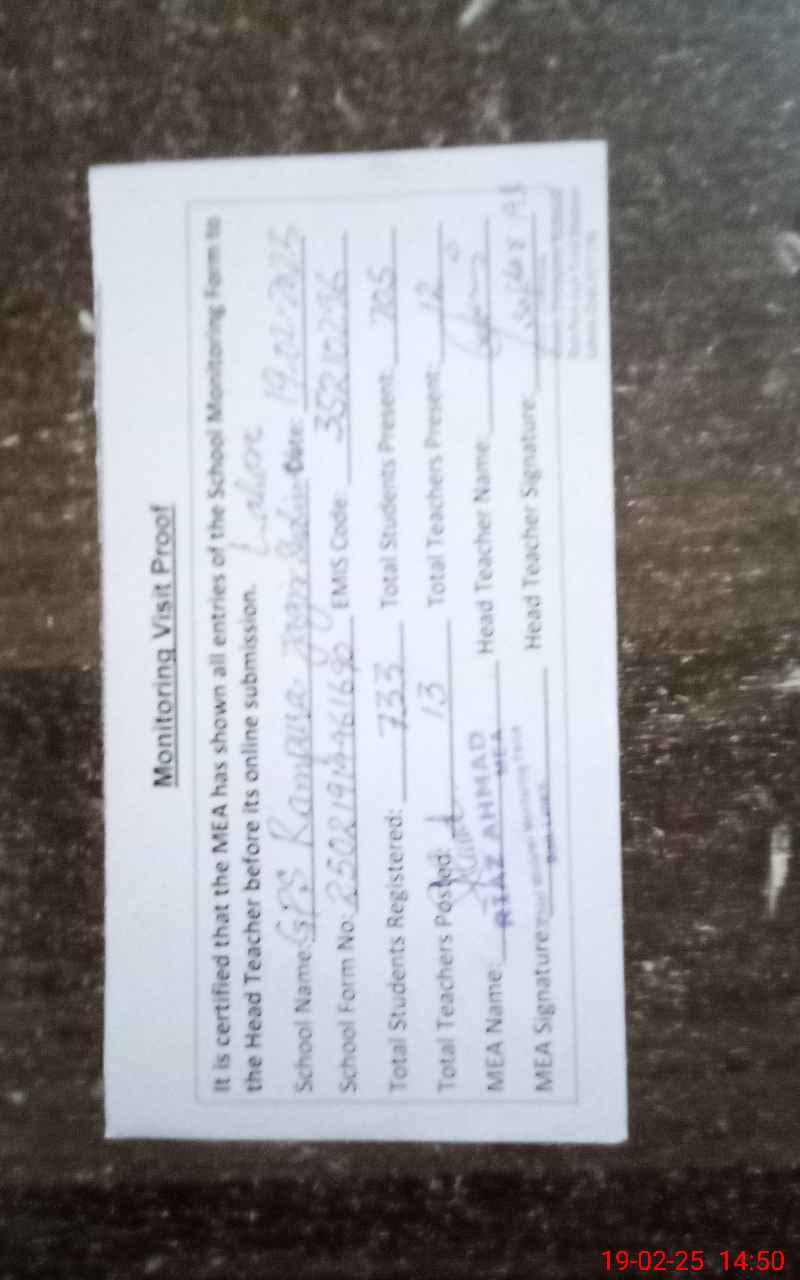 Monitoring Visit Proof
It is certified that the MEA has shown all entries of the School Monitoring Form to
the Head Teacher before its online submission. Lahore
School Name: GPS Rampura Date: 19-02-2025
School Form No: EMIS Code: 35210296
Total Students Registered: 733 Total Students Present: 705
Total Teachers Posted: 13 Total Teachers Present: 12
MEA Name: RIAZ AHMAD Head Teacher Name:
MEA
MEA Signature: Head Teacher Signature:
19-02-25 14:50